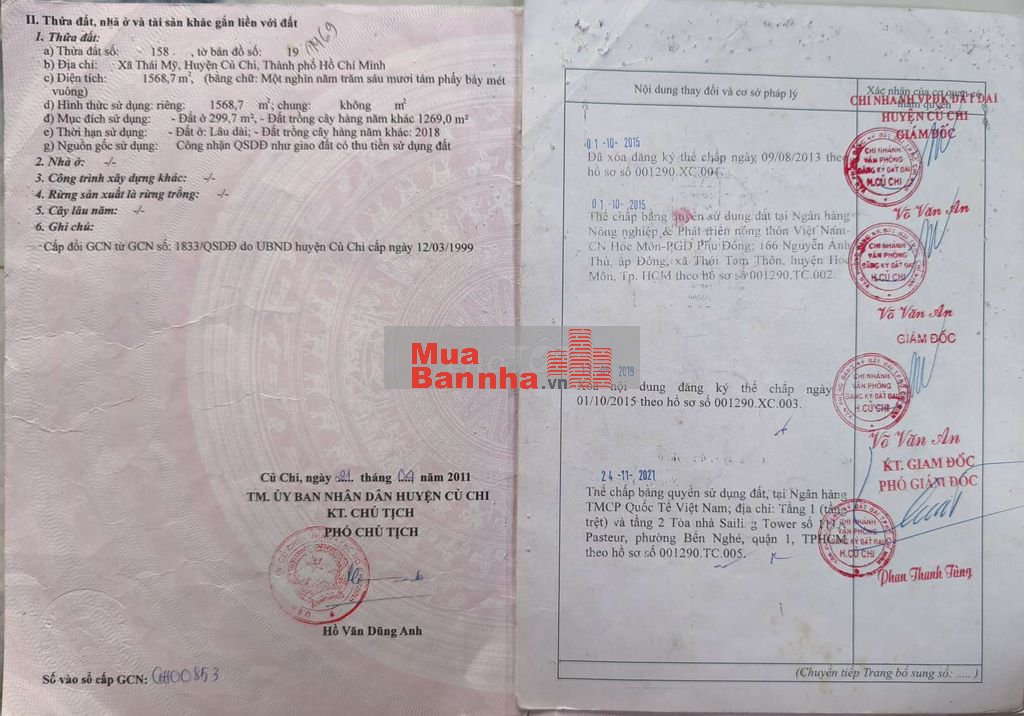 II. Thửa đất, nhà ở và tài sản khác gắn liền với đất
1. Thửa đất:
a) Thửa đất số: 158 , tờ bản đồ số: 19
b) Địa chỉ: Xã Thái Mỹ, Huyện Củ Chi, Thành phố Hồ Chí Minh
c) Diện tích: 1568,7 m², (bằng chữ: Một nghìn năm trăm sáu mươi tám phẩy bảy mét
vuông)
d) Hình thức sử dụng: riêng: 1568,7 m², chung: không m²
đ) Mục đích sử dụng: - Đất ở 299,7 m², - Đất trồng cây hàng năm khác 1269,0 m²
e) Thời hạn sử dụng: - Đất ở: Lâu dài; - Đất trồng cây hàng năm khác: 2018
g) Nguồn gốc sử dụng: Công nhận QSDĐ như giao đất có thu tiền sử dụng đất
2. Nhà ở: -/-
3. Công trình xây dựng khác: -/-
4. Rừng sản xuất là rừng trồng: -/-
5. Cây lâu năm: -/-
6. Ghi chú:
- Cấp đổi GCN từ GCN số: 1833/QSDĐ do UBND huyện Củ Chi cấp ngày 12/03/1999
Củ Chi, ngày 21 tháng 04 năm 2011
TM. ỦY BAN NHÂN DÂN HUYỆN CỦ CHI
KT. CHỦ TỊCH
PHÓ CHỦ TỊCH
Hồ Văn Dũng Anh
Số vào sổ cấp GCN: CH00853
Nội dung thay đổi và cơ sở pháp lý
Xác nhận của cơ quan có
thẩm quyền
CHI NHÁNH VPĐK ĐẤT ĐAI
HUYỆN CỦ CHI
GIÁM ĐỐC
01-10-2015
Đã xóa đăng ký thế chấp ngày 09/08/2013 theo
hồ sơ số 001290.XC.001.
CHI NHÁNH
VĂN PHÒNG
ĐĂNG KÝ ĐẤT ĐAI
H.CỦ CHI
Võ Văn An
01-10-2015
Thế chấp bằng quyền sử dụng đất tại Ngân hàng
Nông nghiệp & Phát triển nông thôn Việt Nam-
CN Hóc Môn-PGD Phú Đông; 166 Nguyễn Anh
Thủ, ấp Đông, xã Thới Tam Thôn, huyện Hóc
Môn, Tp. HCM theo hồ sơ số 001290.TC.002.
CHI NHÁNH
VĂN PHÒNG
ĐĂNG KÝ ĐẤT ĐAI
H.CỦ CHI
Võ Văn An
GIÁM ĐỐC
Mua
Bannha.vn
2019
Xóa nội dung đăng ký thế chấp ngày
01/10/2015 theo hồ sơ số 001290.XC.003.
CHI NHÁNH
VĂN PHÒNG
ĐĂNG KÝ ĐẤT ĐAI
H.CỦ CHI
Võ Văn An
KT. GIÁM ĐỐC
PHÓ GIÁM ĐỐC
24-11-2021
Thế chấp bằng quyền sử dụng đất, tại Ngân hàng
TMCP Quốc Tế Việt Nam; địa chỉ: Tầng 1 (tầng
trệt) và tầng 2 Tòa nhà Saili g Tower số 111
Pasteur, phường Bến Nghé, quận 1, TPHCM
theo hồ sơ số 001290.TC.005.
CHI NHÁNH
VĂN PHÒNG
ĐĂNG KÝ ĐẤT ĐAI
H.CỦ CHI
Phan Thanh Tùng
(Chuyển tiếp Trang bổ sung số: ..... )